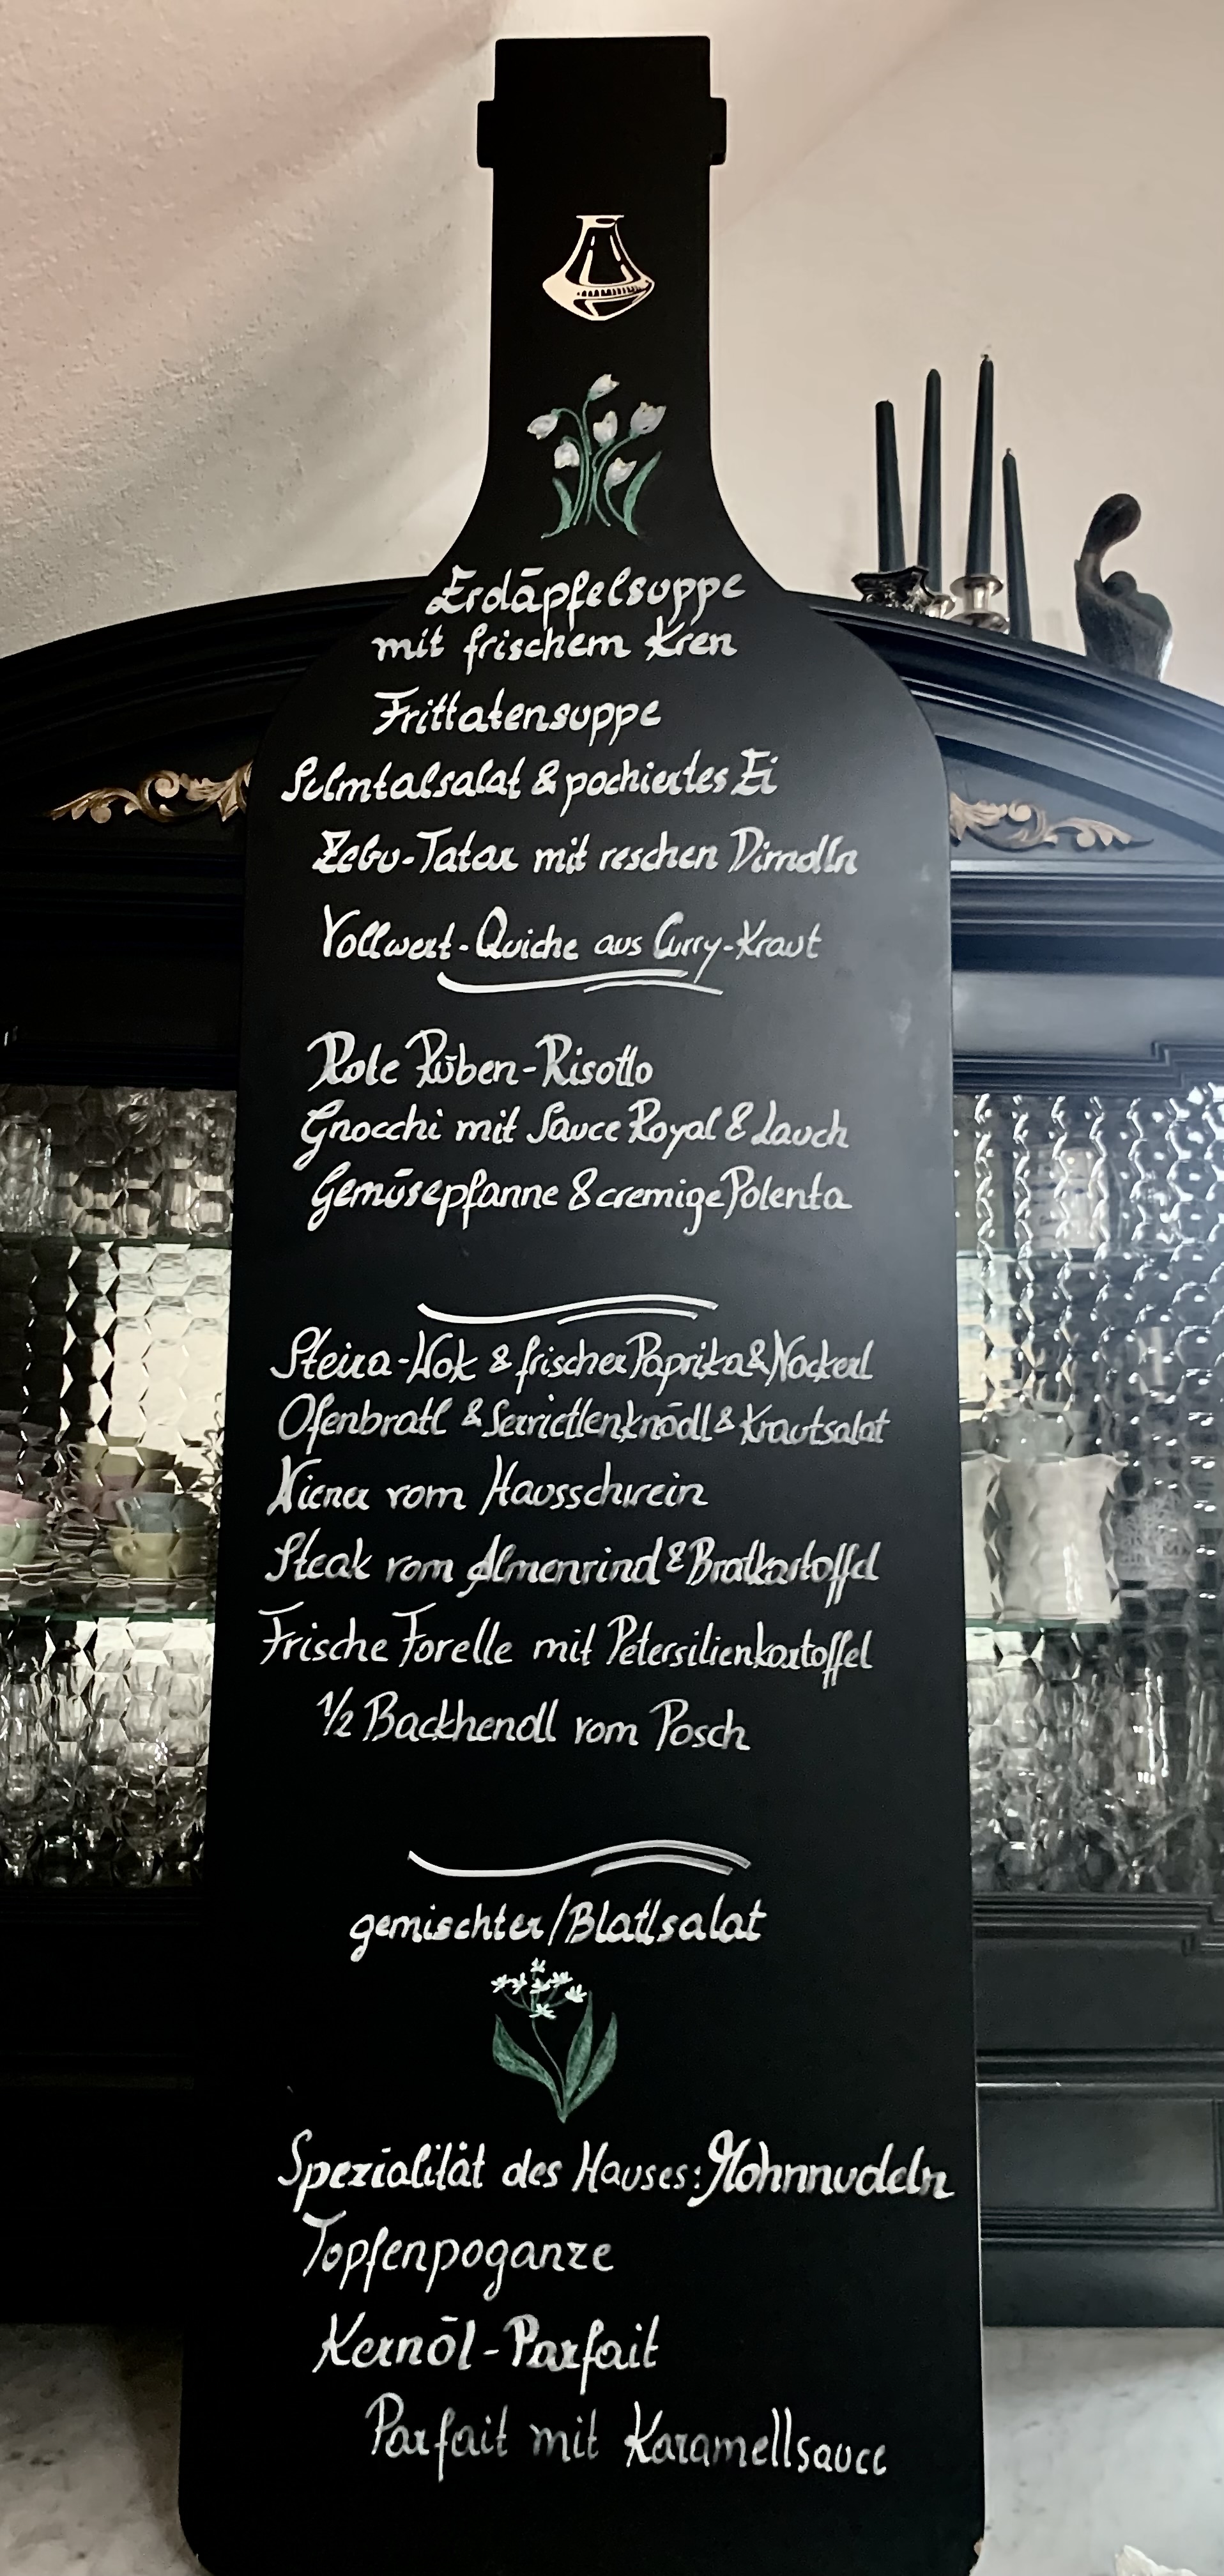 Erdäpfelsuppe
mit frischem Kren
Frittatensuppe
Sulmtalsalat & pochiertes Ei
Zebu-Tatar mit reschen Dirndln
Vollwert-Quiche aus Curry-Kraut
Rote Rüben-Risotto
Gnocchi mit Sauce Royal & Lauch
Gemüsepfanne & cremige Polenta
Steira-Wok & frischer Paprika & Nockerl
Ofenbratl & Serviettenknödl & Krautsalat
Wiener vom Hausschwein
Steak vom Almenrind & Bratkartoffel
Frische Forelle mit Petersilienkartoffel
1/2 Backhendl vom Posch
gemischter/Blattsalat
Spezialität des Hauses: Mohnnudeln
Topfenpoganze
Kernöl-Parfait
Parfait mit Karamellsauce